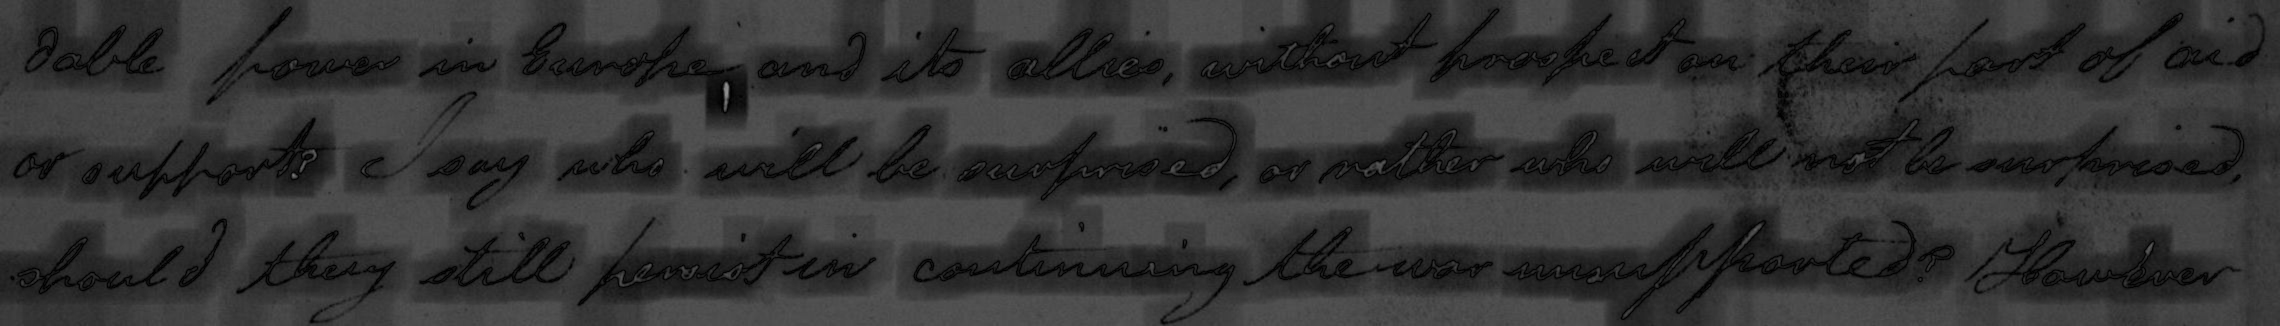 dable power in Europe and its allies, without prospect on their part of aid
or support? I say who will be surprised, or rather who will not be surprised,
should they still persist in continuing the war unsupported? However